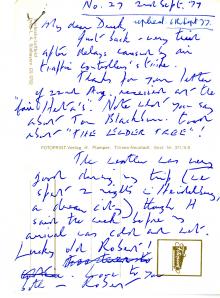 No. 27 2nd Sept. 77
My dear Derek, replied 6th Sept 77.
Just back - very tired
after delays caused by air
traffic controllers' strike.
Thanks for your letter
of 22nd Aug, received at the
Note what you say
about Tom Blackburn. took
about "THE ELDER TREE"!
FOTOPRINT-Verlag H. Plamper, Titisee-Neustadt
The weather was very
good during my trip (I
spent 2 nights in Heidelberg,
a dream city) though H
said the week before my
arrival was cold and wet.
Lucky old Robert!
love to you
both - Robert
Titisee